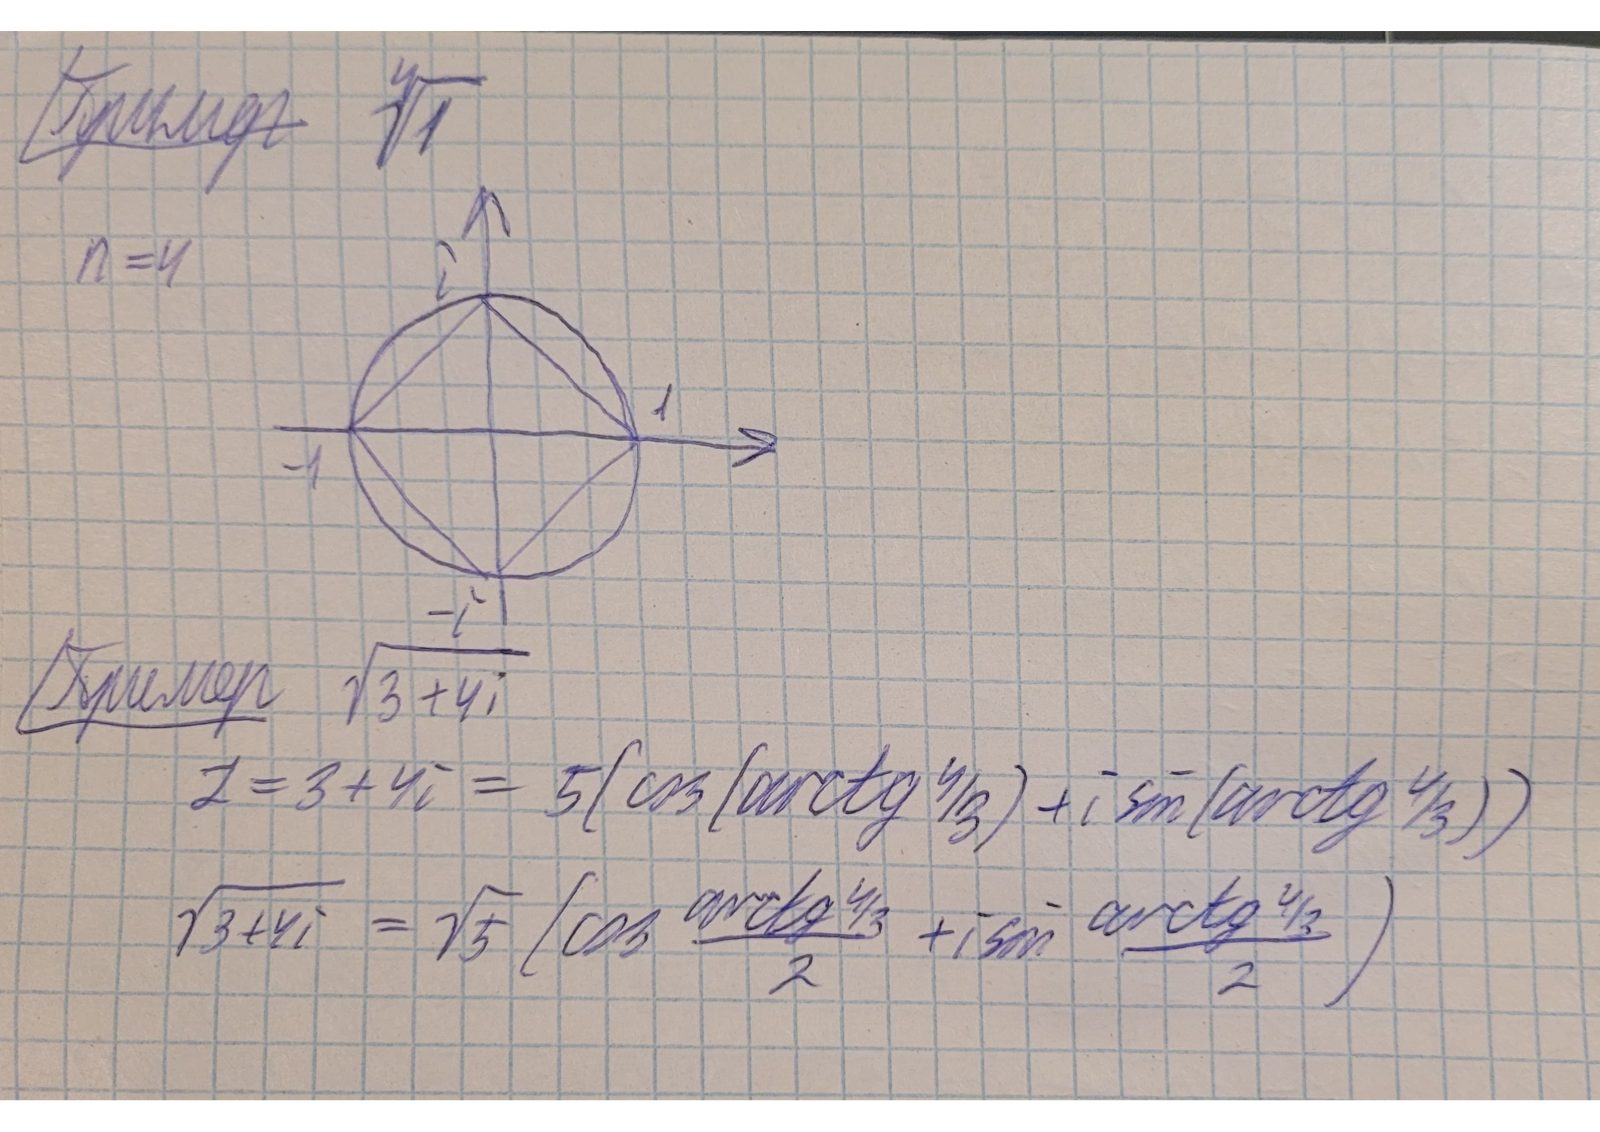 Пример ∜1
n=4
i
1
-1
-i
Пример √(3+4i)
z = 3+4i = 5(cos(arctg 4/3) + i sin(arctg 4/3))
√(3+4i) = √5 (cos (arctg 4/3)/2 + i sin (arctg 4/3)/2)